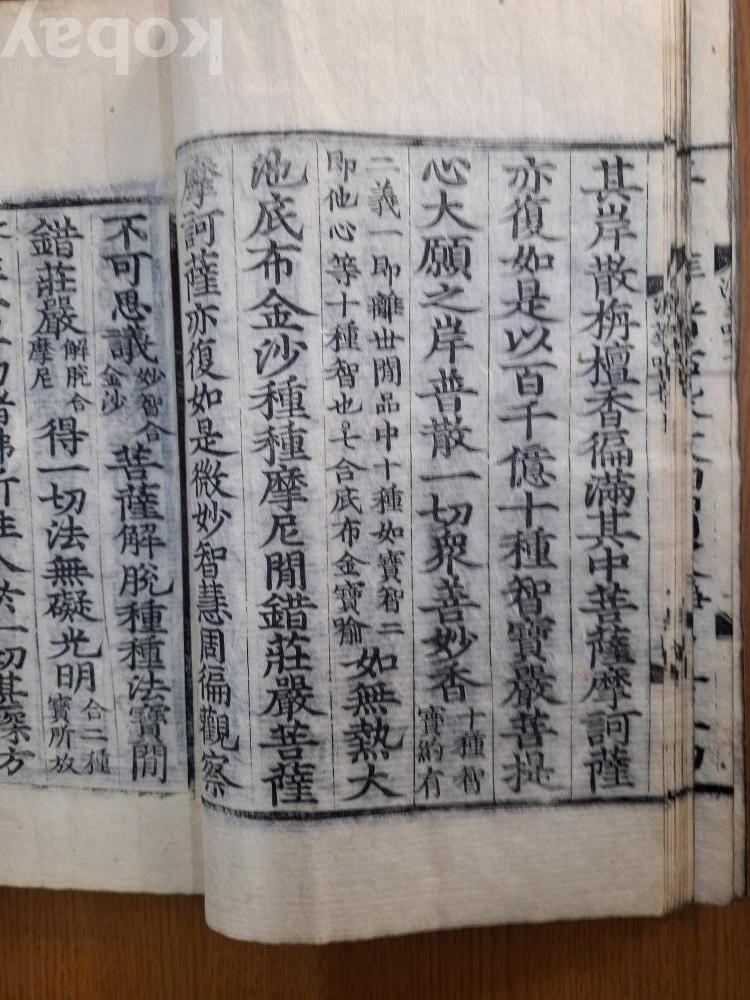 其岸散栴檀香徧滿其中菩薩摩訶薩
亦復如是以百千億十種智寶嚴菩提
心大願之岸普散一切衆善妙香十種智
寶約有
二義一即離世間品中十種如寶智二
即他心等十種智也七合底布金寶喻
如無熱大
池底布金沙種種摩尼間錯莊嚴菩薩
摩訶薩亦復如是微妙智慧周徧觀察
不可思議妙智合
金沙
菩薩解脫種種法寶間
錯莊嚴解脫合
摩尼
得一切法無礙光明合二種
寶所放
kobay